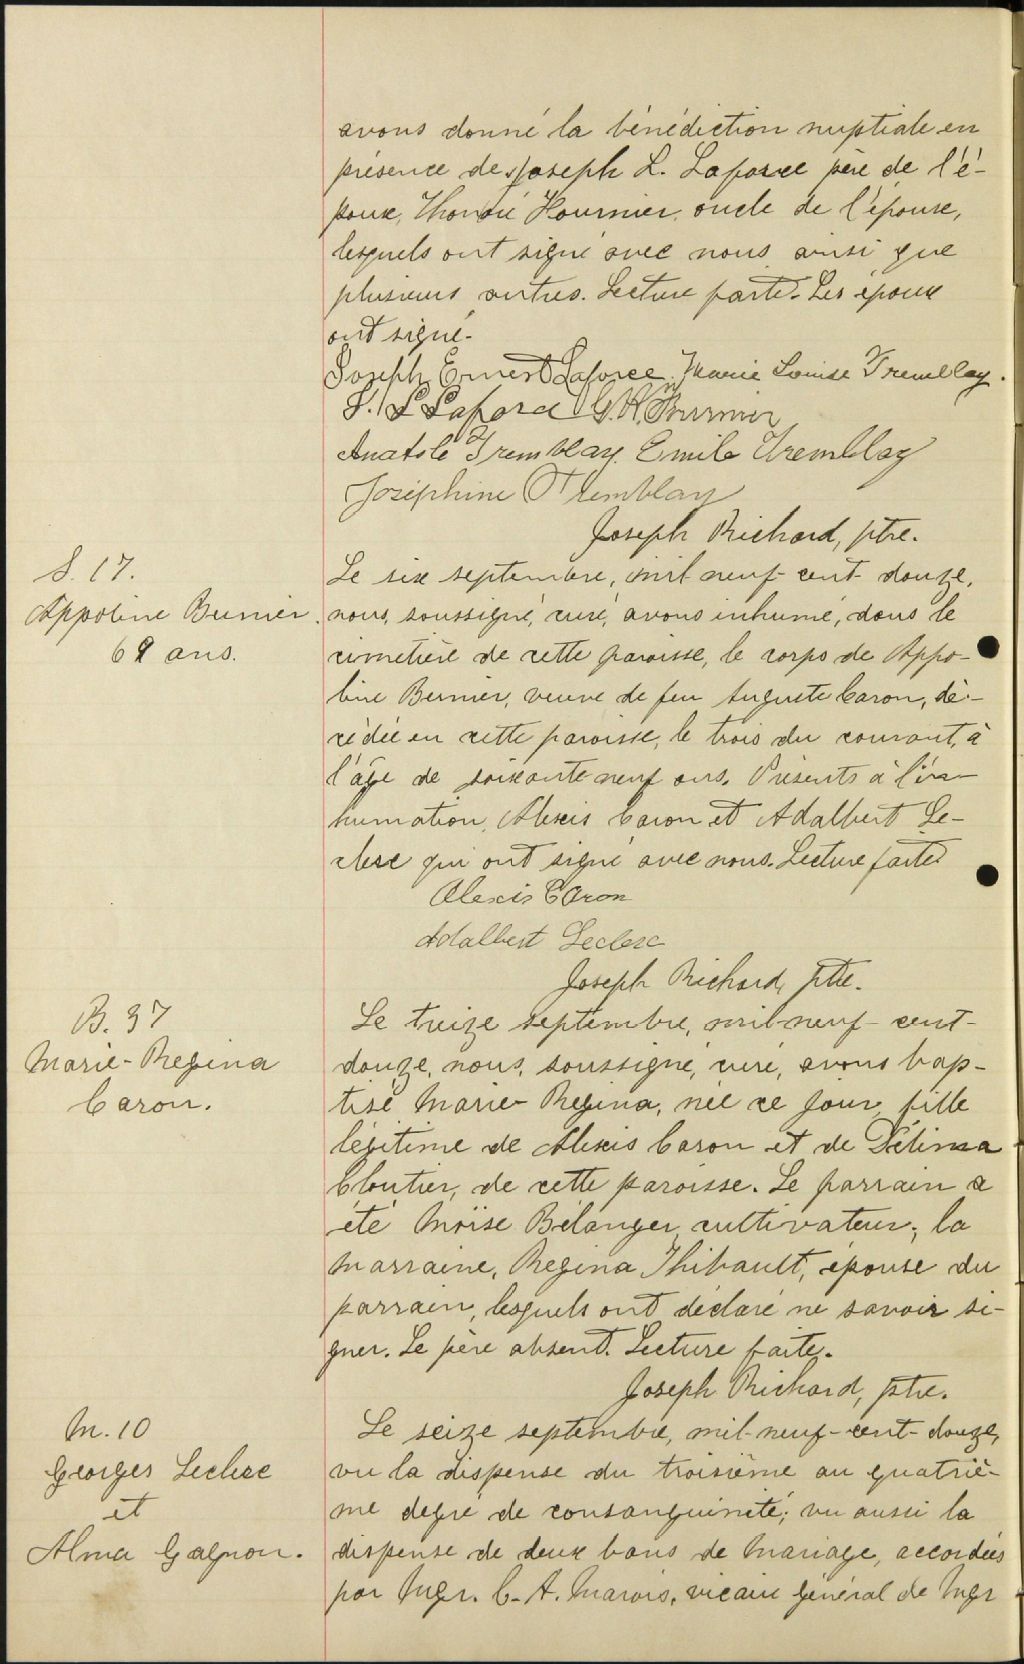 avons donné la bénédiction nuptiale en
présence de Joseph L. Laforce père de l'é-
poux, Fournier, oncle de l'épouse,
lesquels ont signé avec nous ainsi que
plusieurs autres. Lecture faite. Les époux
ont signé.
Joseph Ernest Laforce. Marie Louise Tremblay.
J. L Laforce G. H. Fournier
Anatole Tremblay. Emile Tremblay
Joséphine Tremblay
Joseph Richard, ptre.
S. 17.
Appoline Bernier.
69 ans.
Le six septembre, mil neuf-cent-douze,
nous, soussigné, curé, avons inhumé, dans le
cimetière de cette paroisse, le corps de Appo-
line Bernier, veuve de feu Auguste Caron, dé-
cédée en cette paroisse, le trois du courant, à
l'âge de soixante neuf ans. Présents à l'in-
humation, Alexis Caron et Adalbert Le-
clerc qui ont signé avec nous. Lecture faite
Alexis Caron
Adalbert Leclerc
Joseph Richard, ptre.
B. 37
Marie-Regina
Caron.
Le treize septembre, mil-neuf-cent-
douze, nous, soussigné, curé, avons bap-
tisé Marie-Regina, née ce jour, fille
légitime de Alexis Caron et de Délima
Cloutier, de cette paroisse. Le parrain a
été Moïse Bélanger, cultivateur; la
marraine, Regina Thibault, épouse du
parrain, lesquels ont déclaré ne savoir si-
gner. Le père absent. Lecture faite.
Joseph Richard, ptre.
M. 10
Georges Leclerc
et
Alma Gagnon.
Le seize septembre, mil-neuf-cent-douze,
vu la dispense du troisième au quatriè-
me degré de consanguinité; vu aussi la
dispense de deux bans de mariage, accordées
par Mgr. C. A. Marois, vicaire général de Mgr